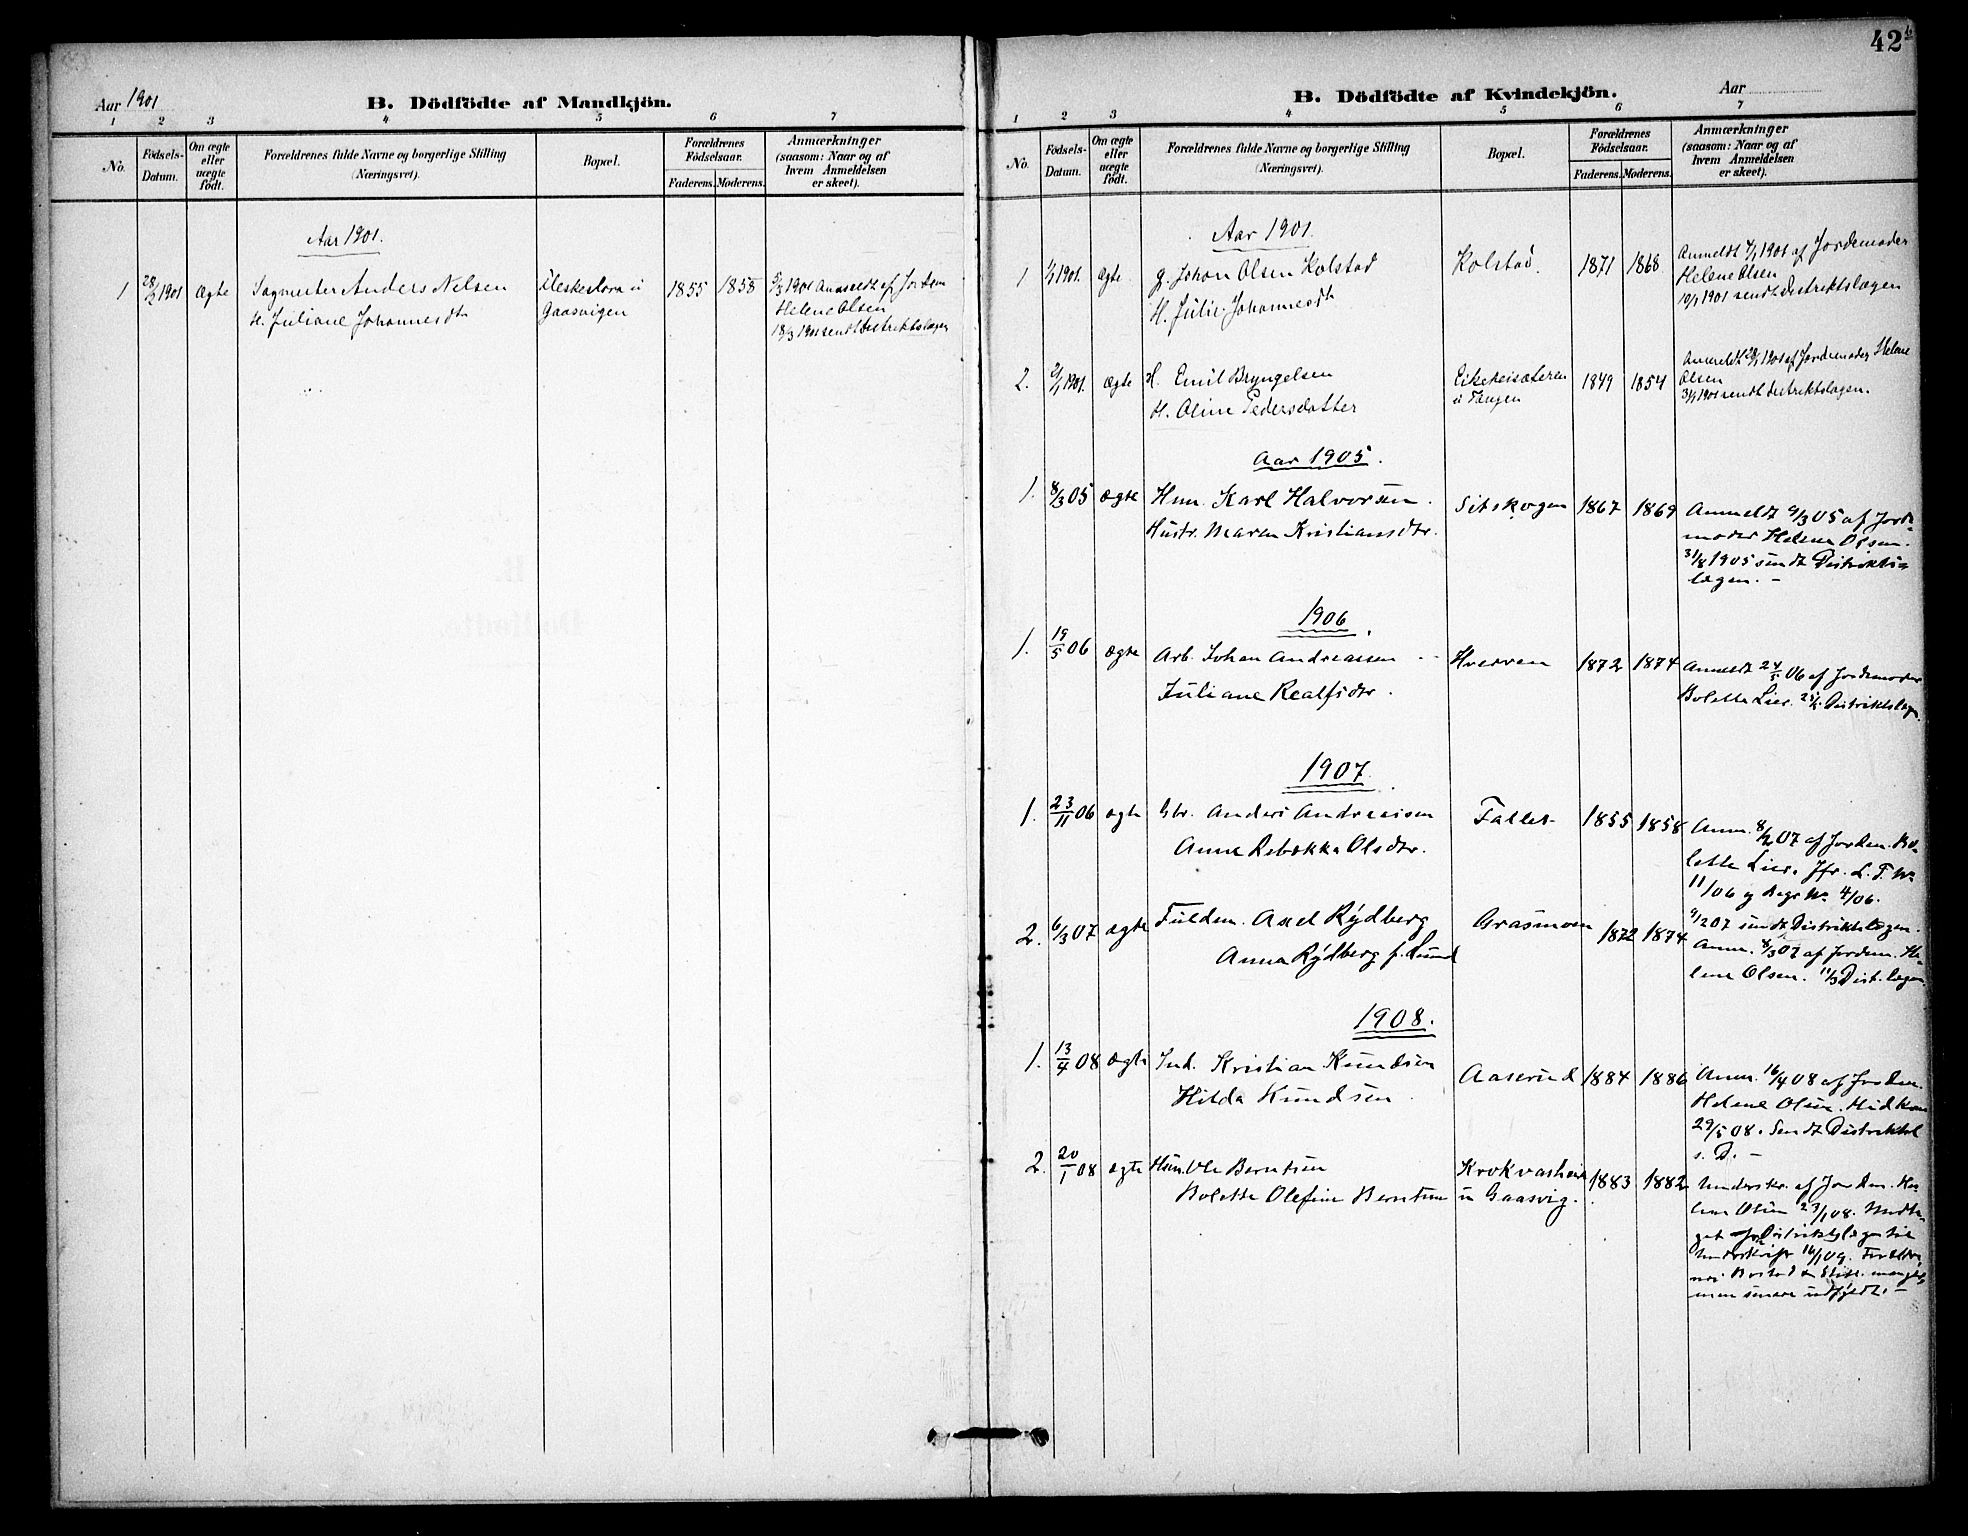 Aar 1901
B. Dödfödte af Mandkjön.
1 2 3 4 5 6 7
No.
Födsels-Datum.
Om ægte eller uægte födt.
Forældrenes fulde Navne og borgerlige Stilling
(Næringsvei).
Bopæl.
Forældrenes Födselsaar.
Faderens. Moderens.
Anmærkninger
(saasom: Naar og af
hvem Anmeldelsen
er skeet).
Aar 1901.
1 28/2 1901 Ægte Sagmester Anders Nilsen
H. Juliane Johannesdt
Gaasvigen
1855 1858
5/3 1901 Anmeldt af Jordm
Helene Olsen
18/3 1901 sendt Distriktslægen
42b
B. Dödfödte af Kvindekjön.
Aar
1 2 3 4 5 6 7
No.
Födsels-Datum.
Om ægte eller uægte födt.
Forældrenes fulde Navne og borgerlige Stilling
(Næringsvei).
Bopæl.
Forældrenes Födselsaar.
Faderens. Moderens.
Anmærkninger
(saasom: Naar og af
hvem Anmeldelsen
er skeet).
Aar 1901.
1 1901. Ægte G. Johan Olsen Kolstad
H. Julie Johannesdt
Kolstad. 1871 1868
Anmeldt 1901 af Jordemoder
Helene Olsen
10/1 1901 sendt Distriktslægen
2. 1901. Ægte H. Emil Bryngelsen
H. Oline Pedersdatter
Eikekeisæteren
u Tangen
1849 1854
Anmeldt 1901 af Jordemoder Helene
Olsen
1901 sendt Distriktslægen.
Aar 1905.
1. 8/3 05 Ægte Hmn. Karl Halvorsen.
Hustr. Maren Kristiansdtr.
Sitskogen 1867 1869
Anmeldt 9/3 05 af Jord-
moder Helene Olsen.
31/8 1905 sendt Distrikts-
lægen. –
1906
1. 19/5 06 Ægte Arb. Johan Andreassen
Juliane Realfsdtr.
Hverven 1872 1874
Anmeldt 24/5 06 af Jordemoder
Bolette Lier. Distriktslægen.
1907.
1. 23/11 06 ægte Gbr. Anders Andreassen
Anne Rebekka Olsdtr.
Faller 1855 1858
Anm. 8/2 07 af Jordem. Bo-
lette Lier. Jfr. L. F. No
11/06 og Dagr No 4/06.
9/2 07 sendt Distriktslægen.
2. 6/3 07 ægte Fuldm. Axel Rydberg
Anna Rydberg f. Lund
Grasmoen 1872 1874
Anm. 8/3 07 af Jordem. He-
lene Olsen. 11/3 Dist.lægen.
1908.
1. 13/4 08 Ægte Ind. Kristian Knudsen
Hilda Knudsen.
Aaserud 1884 1886
Anm. 16/4 08 af Jordem.
Helene Olsen. Hidkom
29/5 08. Sendt Distriktsl
s. D. –
2. 20/1 08 ægte Hmn. Ole Berntsen
Bolette Olefine Berntsen
u Gaasvig.
1883 1882
Underskr. af Jordem. He-
lene Olsen 23/1 08. Modta-
get fra Distriktslægen til
Underskrift 16/1 09. Forældre-
nes Bosted
men senere udfyldt. –